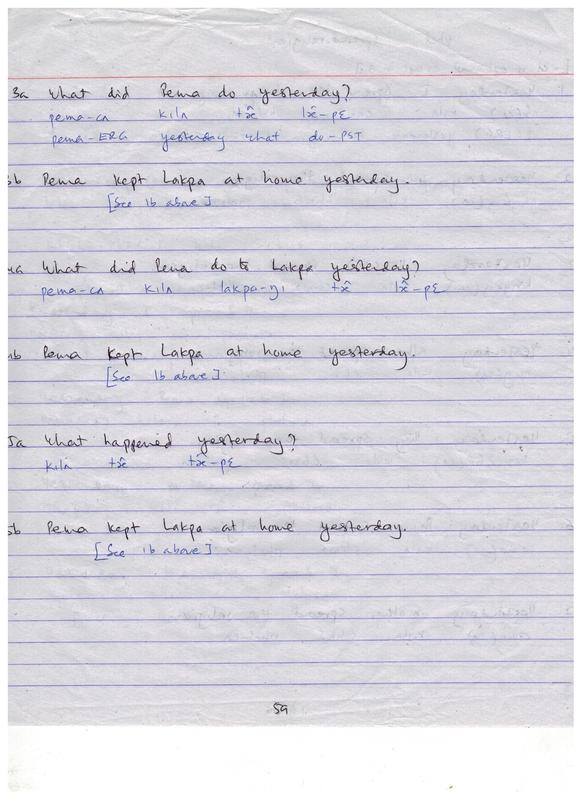 3a What did Pema do yesterday?
pema-cʌ kilʌ tɜ̂ lɜ̂-pɛ
pema-ERG yesterday what do-PST
3b Pema kept Lakpa at home yesterday.
[See 1b above]
4a What did Pema do to Lakpa yesterday?
pema-cʌ kilʌ lakpa-ŋi tɜ̂ lɜ̂-pɛ
4b Pema kept Lakpa at home yesterday.
[See 1b above]
5a What happened yesterday?
kilʌ tɜ̂ tɜ̂-pɛ
5b Pema kept Lakpa at home yesterday.
[See 1b above]
59